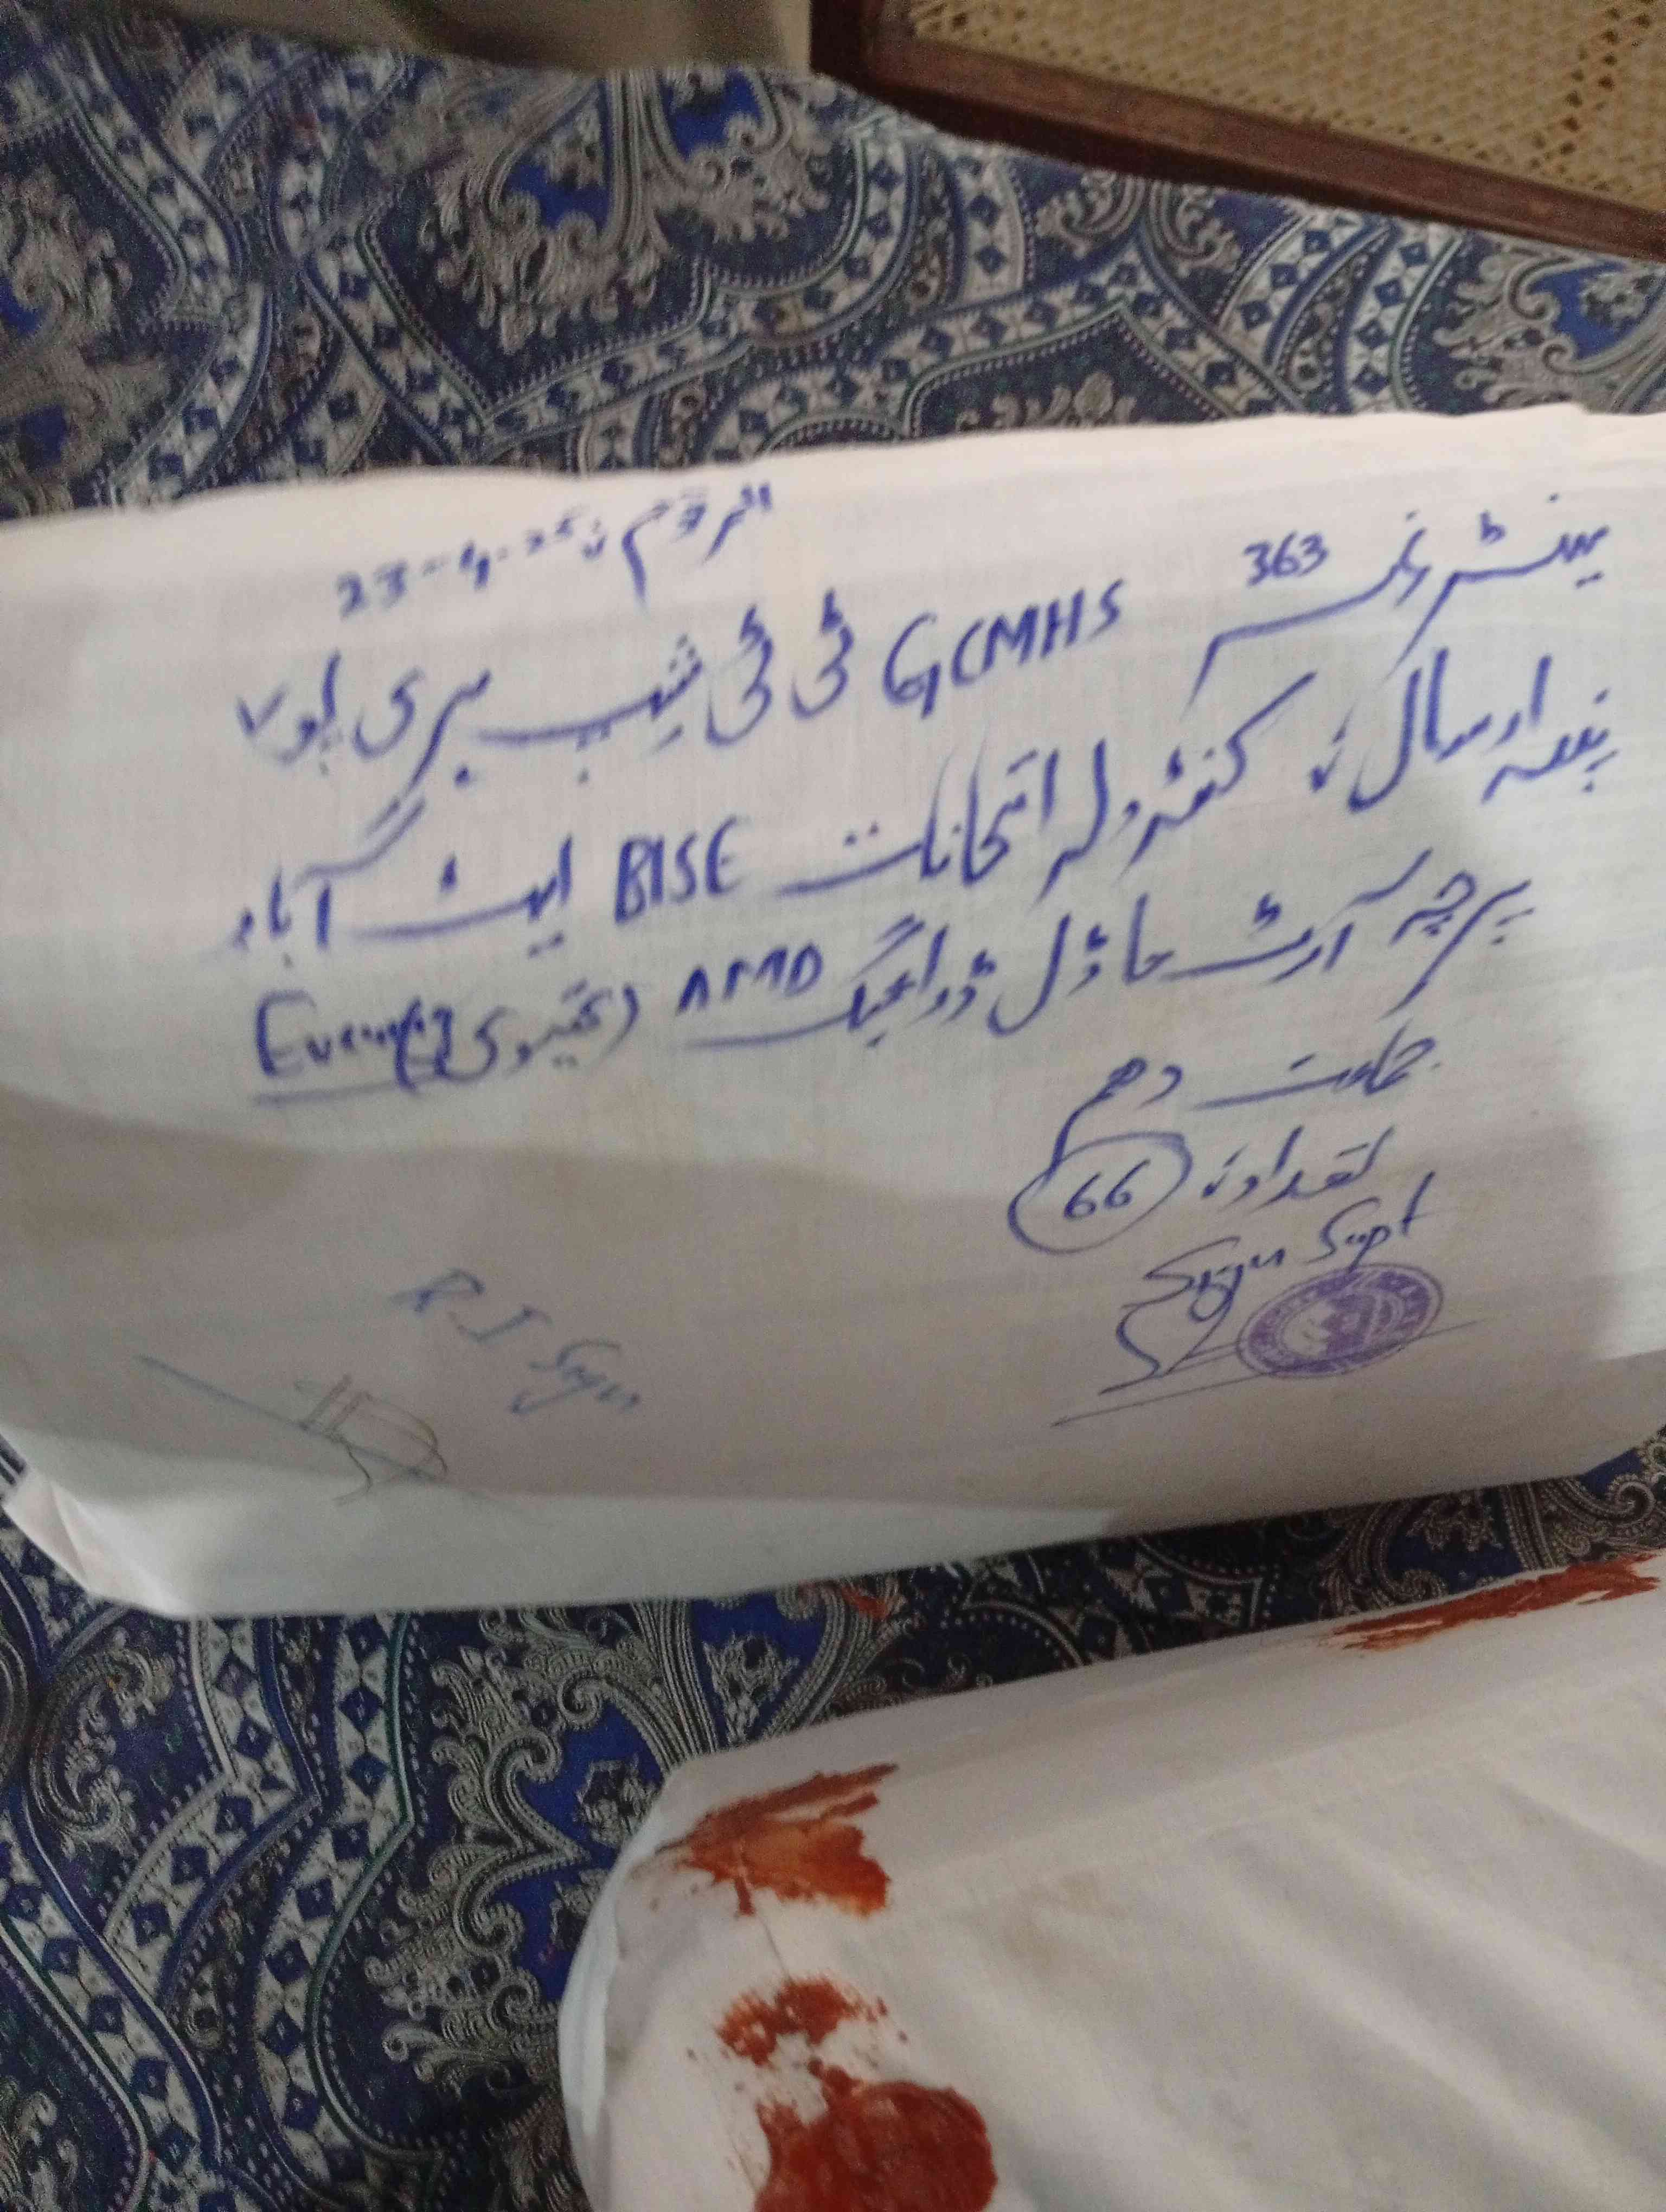 المرقوم: 23-4-25
سینٹر نمبر 363 GCMHS ٹی ٹی شپ ہری پور
بعد ارسال: کنٹرولر امتحانات BISE ایبٹ آباد
پرچہ آرٹ ماڈل ڈرائینگ AMD (تھیوری) Evening
جماعت دہم
تعداد: 66
Sign Supt
R.I Sign